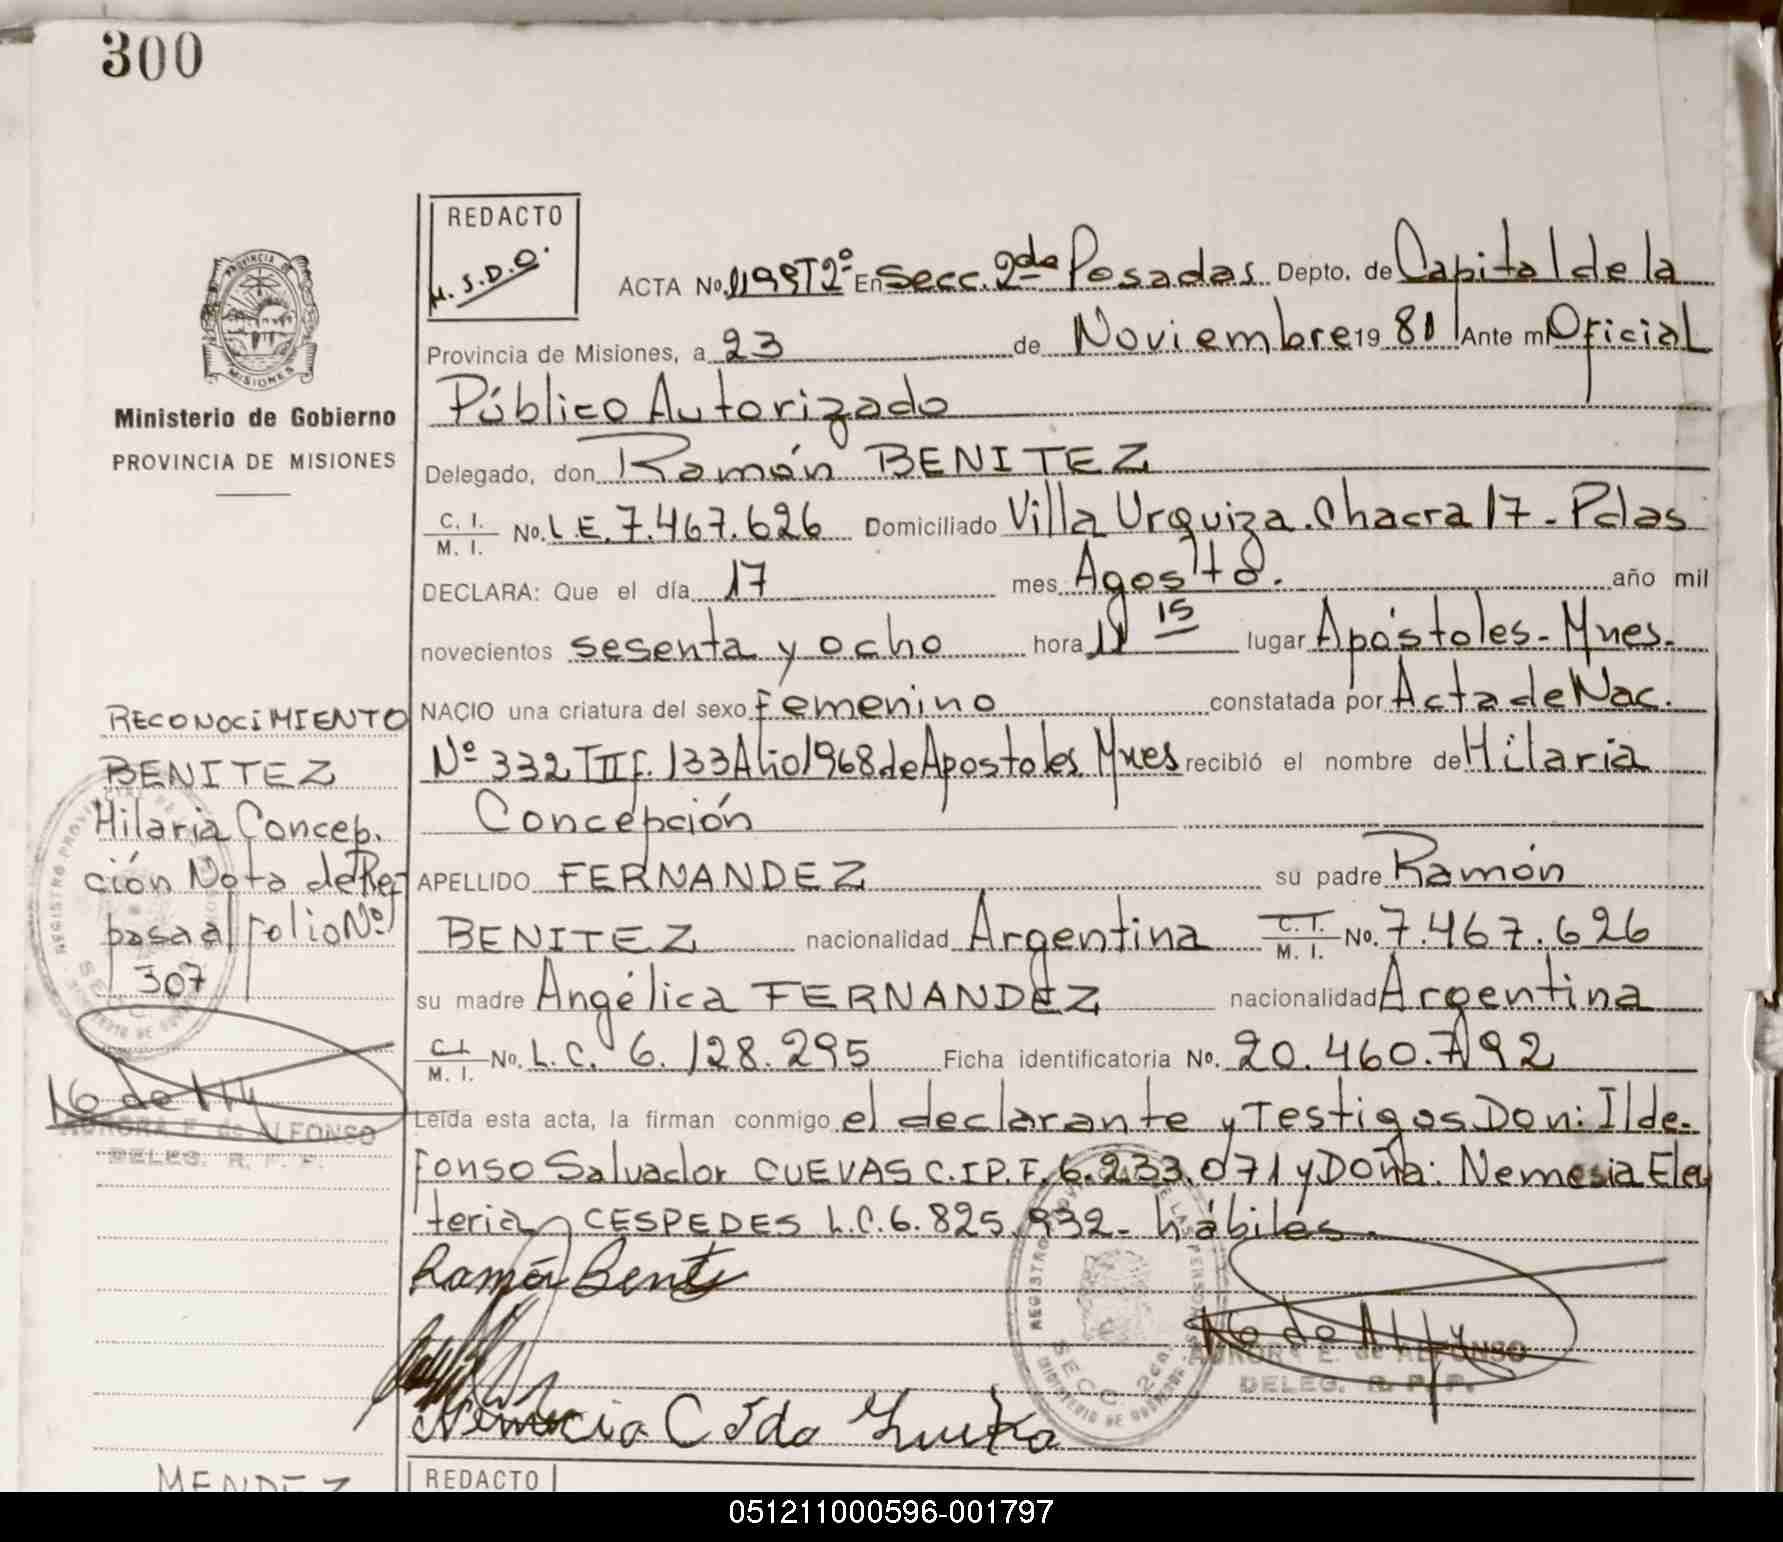 300
REDACTO
M. S. D. O.
PROVINCIA DE
MISIONES
Ministerio de Gobierno
PROVINCIA DE MISIONES
ACTA No. 1199 T2º En Secc. 2da Posadas Depto. de Capital de la
Provincia de Misiones, a 23 de Noviembre 19 81 Ante mi Oficial
Público Autorizado
Delegado, don Ramón BENITEZ
C. I. / M. I. No. L.E. 7.467.626 Domiciliado Villa Urquiza. Chacra 17 - Pdas
DECLARA: Que el día 17 mes Agosto. año mil
novecientos sesenta y ocho hora 11 15 lugar Apóstoles - Mnes.
NACIO una criatura del sexo femenino constatada por Acta de Nac.
Nº 332 TIII f. 133 Año 1968 de Apostoles Mnes recibió el nombre de Hilaria
Concepción
APELLIDO FERNANDEZ su padre Ramón
BENITEZ nacionalidad Argentina C.I. / M. I. No. 7.467.626
su madre Angélica FERNANDEZ nacionalidad Argentina
C.I. / M. I. No. L.C. 6.128.295 Ficha identificatoria No. 20.460.792
Leída esta acta, la firman conmigo el declarante y Testigos Don: Ilde-
fonso Salvador CUEVAS C.I.P.F. 6.233.071 y Doña: Nemesia Eleu
teria CESPEDES L.C. 6.825.932 - hábiles.
Ramón Benit
AURORA E. de ALFONSO
DELEG. R. P. P.
RECONOCIMIENTO
BENITEZ
Hilaria Concep.
ción Nota de Ref
pasa al folio Nº
307
AURORA E. de ALFONSO
DELEG. R. P. P.
MENDEZ
REDACTO
051211000596-001797